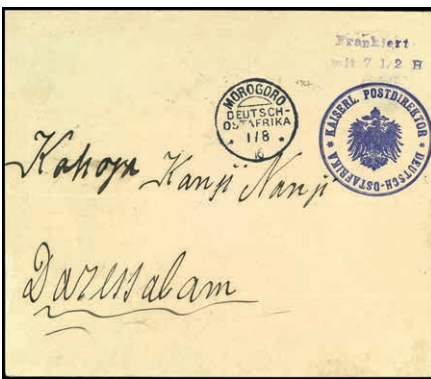 Frankiert
mit 7 1/2 H
MOROGORO
DEUTSCH-
OSTAFRIKA
1/8
16
* KAISERL. POSTDIREKTOR * DEUTSCH-OSTAFRIKA
Kanji Nanji
Daressalam